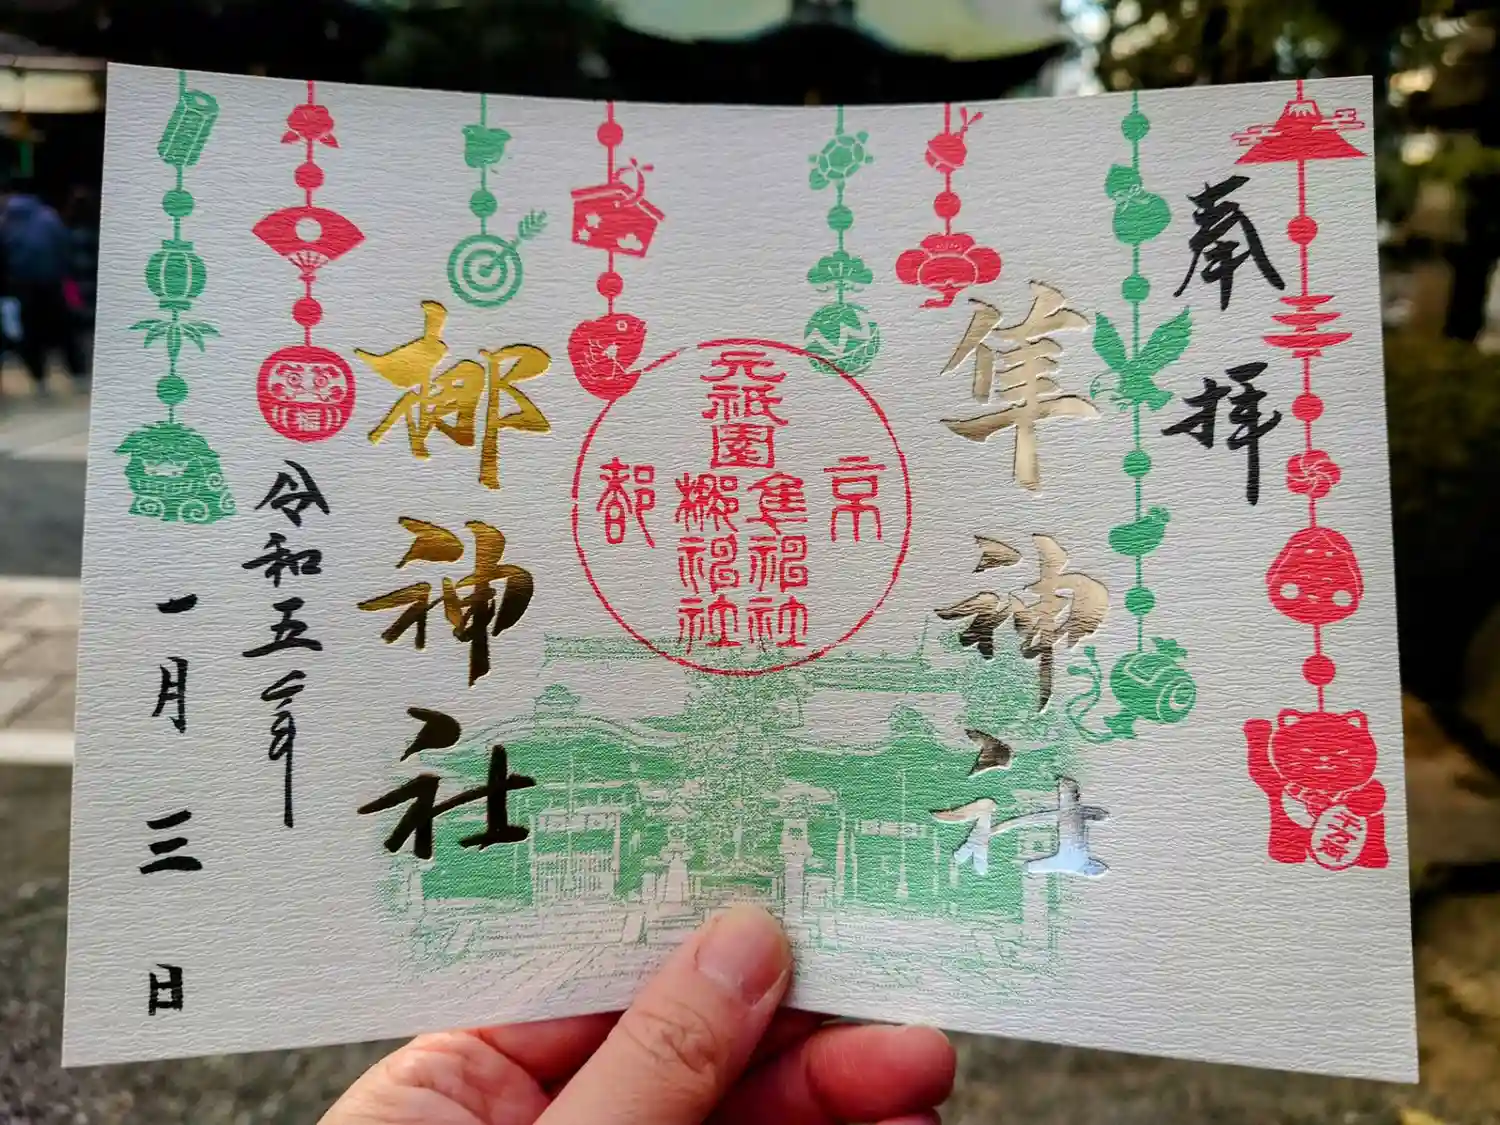 奉拝
隼神社
京
元祇園
隼神社
梛神社
都
梛神社
令和五年
一月三日
福